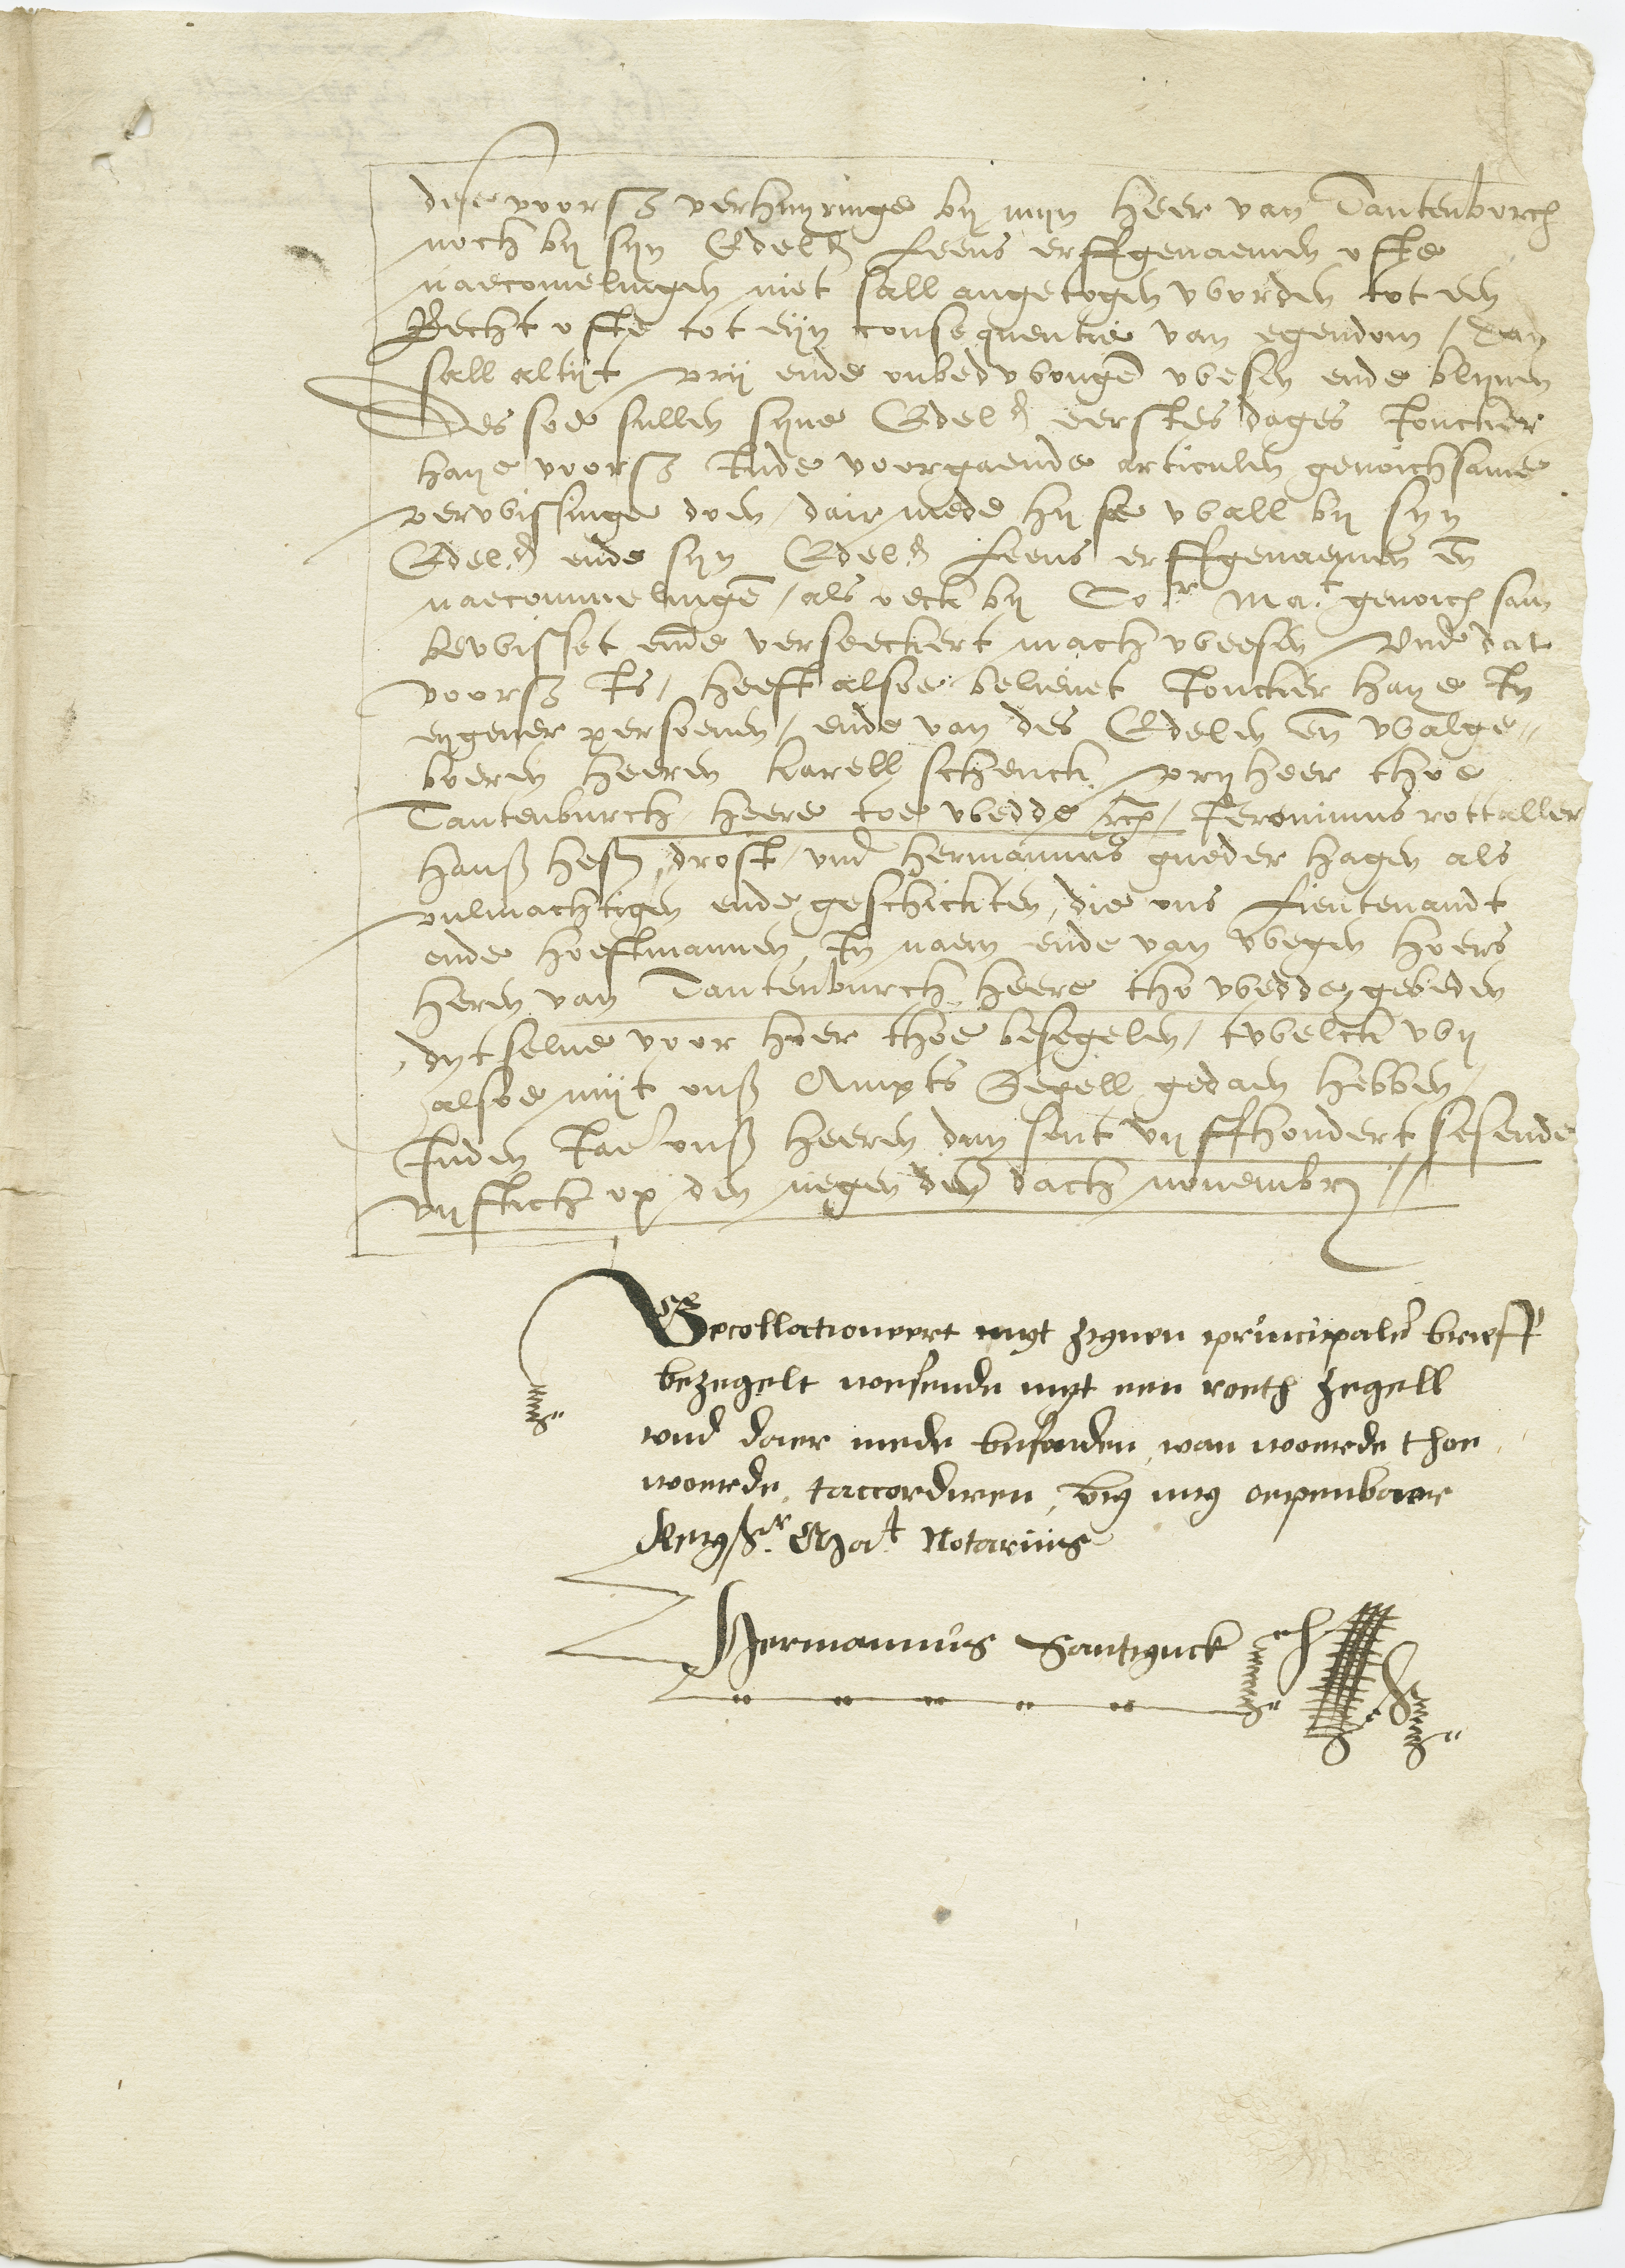 dese voorsz verhuyringe by myn heer van Tautenborch
noch by syn Edelh Leens erffgenaemen ofte
naecomelingen niet sall angetogen worden tot een
Recht ofte tot eyn consequentie van egendom / Dan
sall altyt vry ende onbedwongen wesen ende blyven
Des soe sullen syne Edelh eerstes dages Joncker
haye voorsz Inde voorgaende articulen genoichsame
verwissinge doen / dair mede hy se wall by syn
Edelh ende syn Edelh Leens erffgenaemen en
naecommelingen / als oeck by Co.r Ma.t genoich sam
bewisset ende verseeckert mach weesen / Vnd dat
voorsz Is / heeft alsoe believet Joncker haye In
eygener persoenen / ende van des Edelen en walge„
boeren heeren karell schenck vryheer thoe
Tautenburch heere toe wedde rc / Jeronimus rottaller
hanß heß drost / vnd hermannus gueder hagen als
vulmachtigen ende geschickten / die ons Lieutenandt
ende hoeftmannen In naem ende van wegen hoers
heren van Tautenburch heere tho wedde gebeden
dyt selue voor hoer thoe besegelen / twelck wy
alsoe myt onß Ampts Segell gedaen hebben /
Inden Iaer onß heeren duysent vyffhondert sesende
vyftich op den negenden dach novembr //
Gecollationeert myt zynen principalen brieff
bezegelt wesende myt een roeth zegell
und daer mede befonden, van woerde thoe
woerde, taccorderen, by my oepenbaer
Key.r Ma.t Notarius
Hermannus Santynck